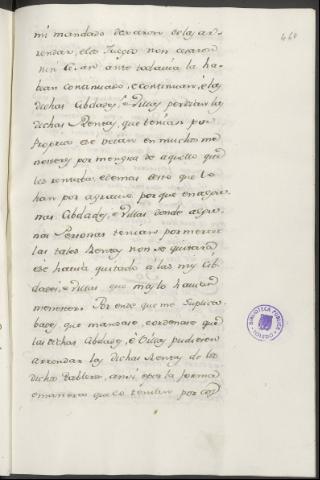 460
mi mandado dexaron de las ar-
rendar, e los Juegos non cesaron
nin cesan ante todavia la ha-
bian continuado, e continuan, e las
dichas Cibdades, e Villas perdian las
dichas Rentas, que tenian por
Proprios e se veian en muchos me
nesteres por mengua de aquello que
les rentaba, e demas desto que lo
han por agravio, porque en algu-
nas Cibdades, e Villas donde algu-
nas Personas tenian por merced
las tales Rentas non se quitaron
e se havia quitado a las mis Cib-
dades, e Villas, que mas lo havian
menester. Por ende que me suplica-
bades, que mandase, e ordenase que
las dichas Cibdades, e Villas pudiesen
arrendar las dichas Rentas de los
dichos Tableros, ansi e por la forma
e manera que lo tenian por cos
BIBLIOTECA PUBLICA
TOLEDO